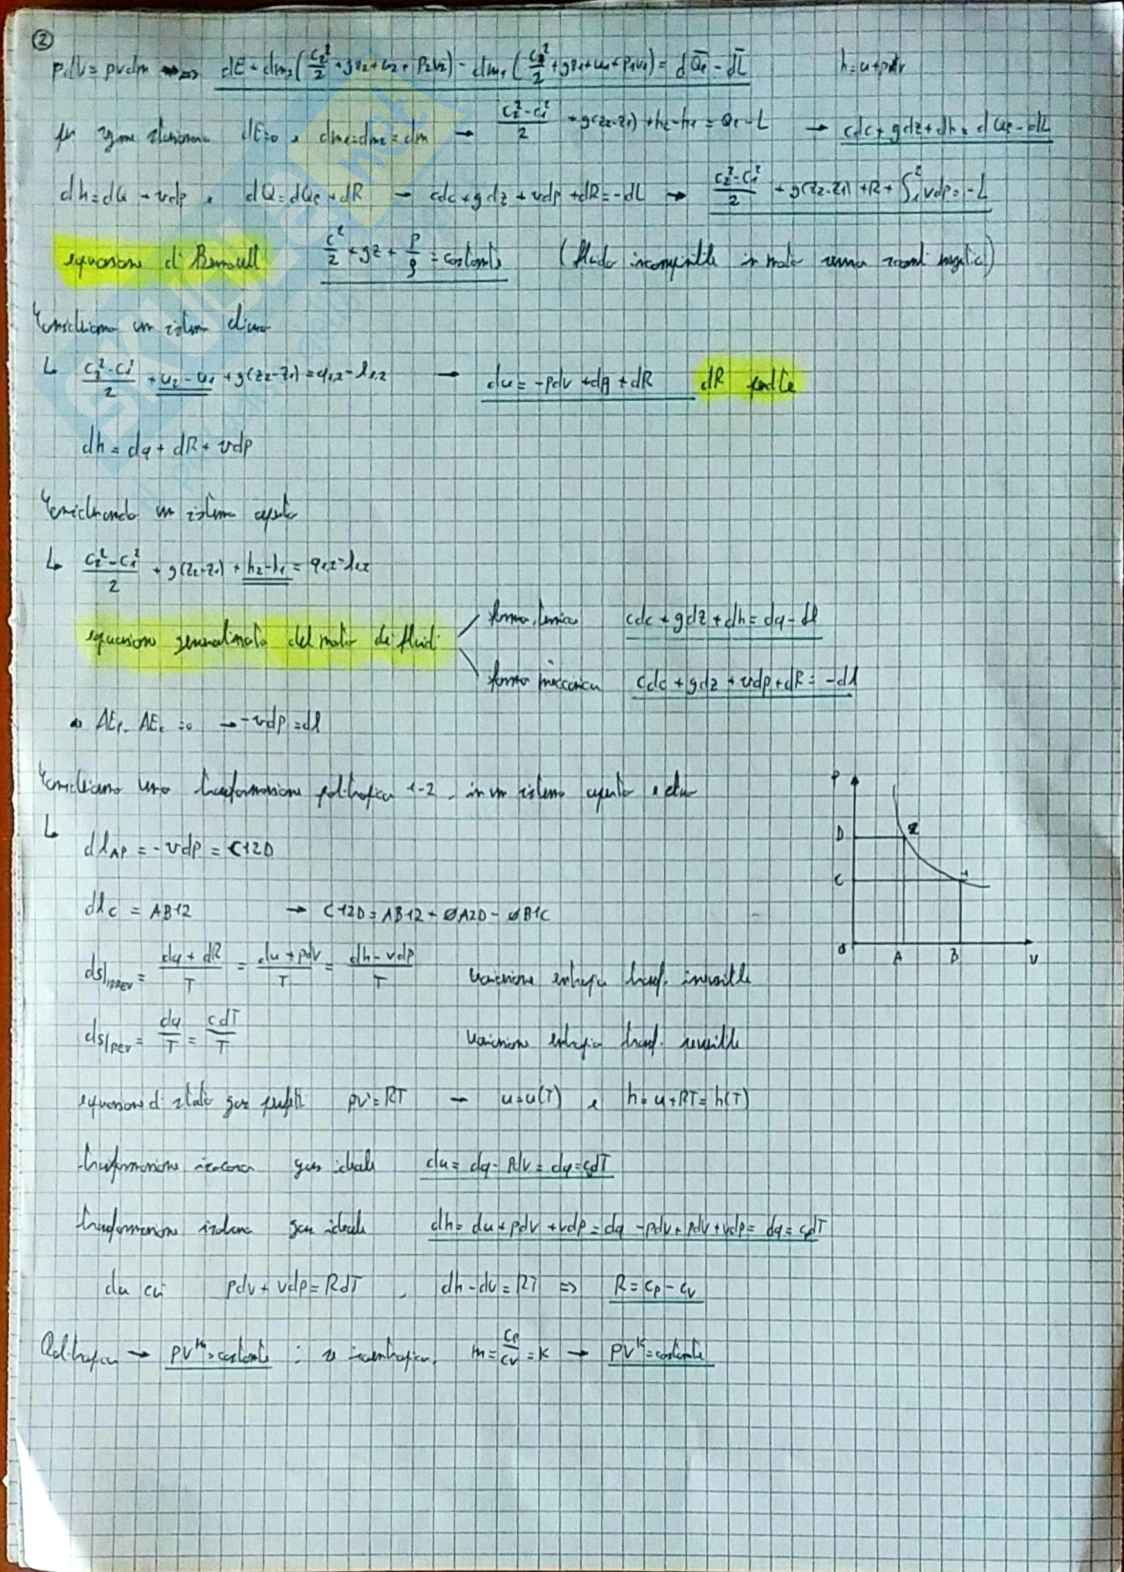 ②
pdV = pvdm ⇒ dE + dm₂(c₂²/2 + gz₂ + u₂ + p₂v₂) - dm₁(c₁²/2 + gz₁ + u₁ + p₁v₁) = dQe - dL h = u + pv
per regime stazionario dE=0 e dm₁=dm₂=dm → (c₂²-c₁²)/2 + g(z₂-z₁) + h₂-h₁ = Qe - L → cdc + gdz + dh = dQe - dL
dh = dQ + vdp e dQ = dQe + dR → cdc + gdz + vdp + dR = -dL → (c₂²-c₁²)/2 + g(z₂-z₁) + R + ∫₁² vdp = -L
equazione di Bernoulli c²/2 + gz + p/ρ = costante (fluido incomprimibile in moto senza scambi energetici)
Consideriamo un sistema chiuso
↳ (c₂²-c₁²)/2 + u₂-u₁ + g(z₂-z₁) = q₁,₂ - l₁,₂ → du = -pdv + dq + dR dR perdite
dh = dq + dR + vdp
Considerando un sistema aperto
↳ (c₂²-c₁²)/2 + g(z₂-z₁) + h₂-h₁ = q₁,₂ - l₁,₂
equazione generalizzata del moto dei fluidi
forma termica cdc + gdz + dh = dq - dl
forma meccanica cdc + gdz + vdp + dR = -dl
ΔEp, ΔEc = 0 → -vdp = dl
Consideriamo una trasformazione politropica 1-2, in un sistema aperto e chiuso
↳
dl_AP = -vdp = C12D
dl_C = AB12 → C12D = AB12 + ØA2D - ØB1C
ds|IRREV = (dq + dR)/T = (du + pdv)/T = (dh - vdp)/T variazione entropia trasf. irreversibile
ds|REV = dq/T = cdT/T variazione entropia trasf. reversibile
equazione di stato gas perfetti pv = RT — u = u(T) e h = u + RT = h(T)
trasformazione isocora gas ideale du = dq - pdv = dq = cdT
trasformazione isobara gas ideale dh = du + pdv + vdp = dq - pdv + pdv + vdp = dq = cpdT
da cui pdv + vdp = RdT, dh - du = RT ⇒ R = cp - cv
Politropica → pvᵐ = costante ; se isoentropica, m = cp/cv = k → pvᵏ = costante
P
D
2
C
1
0
A
B
v
SKUOLA.net